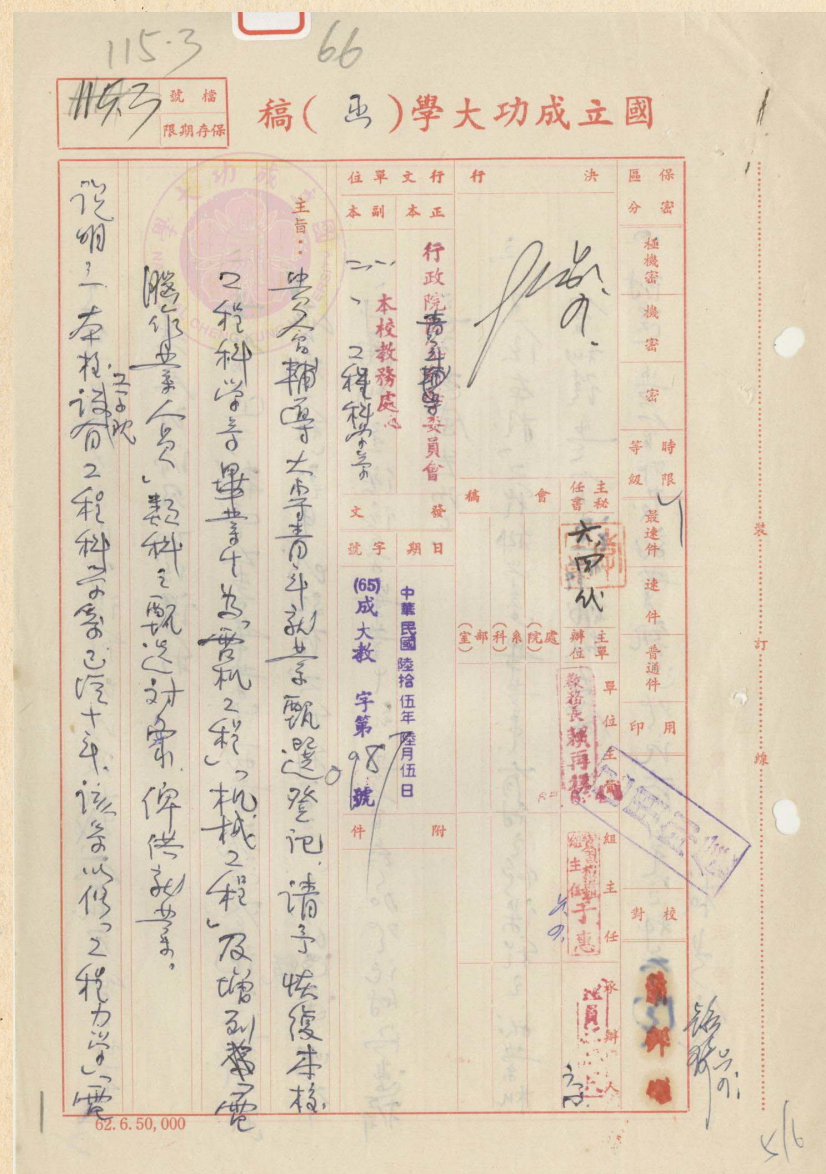 115.3
66
檔號
保存期限
國立成功大學(函)稿
保密區分
極機密
機密
密
時限等級
最速件
速件
普通件
用印
校對
決行
主任秘書
六.四
會稿
處(院)系(科)部(室)
主辦單位
單位主管
教務長
組主任
承辦人
行文單位
正本
行政院青年輔導委員會
副本
本校教務處
工程科學系
發文
日期
中華民國陸拾伍年陸月伍日
字號
(65)成大教字第
1987
號
附件
主旨：
貴會輔導大專青年就業甄選登記，請予恢復本校
工程科學系畢業生為「電机工程」「机械工程」及增列「電
腦作業人員」類科之甄選對象，俾供就業。
說明：一、本校工學院設有工程科學系已經十年，該系以修「工程力學」「電
裝
訂
線
62.6.50,000
5/6